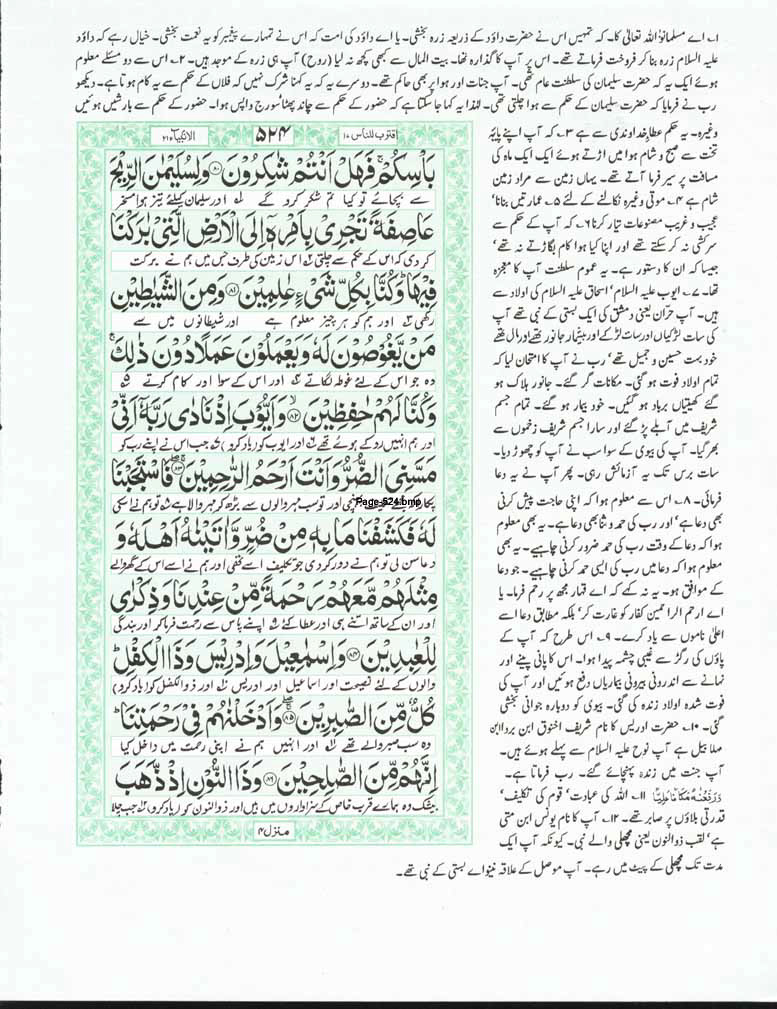 ۱۔ اے مسلمانو! اللہ تعالیٰ کا۔ کہ تمہیں اس نے حضرت داؤد کے ذریعہ زرہ بخشی۔ یا اے داؤد کی امت کہ اس نے تمہارے پیغمبر کو یہ نعمت بخشی۔ خیال رہے کہ داؤد
علیہ السلام زرہ بنا کر فروخت فرماتے تھے۔ اس پر آپ کا گذارہ تھا۔ بیت المال سے کبھی کچھ نہ لیا (روح) آپ ہی زرہ کے موجد ہیں۔ ۲۔ اس سے دو مسئلے معلوم
ہوئے ایک یہ کہ حضرت سلیمان کی سلطنت عام تھی۔ آپ جنات اور ہوا پر بھی حاکم تھے۔ دوسرے یہ کہ یہ کہنا شرک نہیں کہ فلاں کے حکم سے یہ کام ہوتا ہے۔ دیکھو
رب نے فرمایا کہ حضرت سلیمان کے حکم سے ہوا چلتی تھی۔ لہٰذا یہ کہا جا سکتا ہے کہ حضور کے حکم سے چاند پھٹا سورج واپس ہوا۔ حضور کے حکم سے بارشیں ہوئیں
وغیرہ۔ یہ حکم عطاء خداوندی سے ہے ۳۔ کہ آپ اپنے پایۂ
تخت سے صبح و شام ہوا میں اڑتے ہوئے ایک ایک ماہ کی
مسافت پر سیر فرما آتے تھے۔ یہاں زمین سے مراد زمین
شام ہے ۴۔ موتی وغیرہ نکالنے کے لئے ۵۔ عمارتیں بنانا'
عجیب و غریب مصنوعات تیار کرنا ۶۔ کہ آپ کے حکم سے
سرکشی نہ کر سکتے تھے اور اپنا کیا ہوا کام بگاڑتے نہ تھے'
جیسا کہ ان کا دستور ہے۔ یہ عموم سلطنت آپ کا معجزہ
تھا۔ ۷۔ ایوب علیہ السلام' اسحاق علیہ السلام کی اولاد سے
ہیں۔ آپ حران یعنی دمشق کی ایک بستی کے نبی تھے آپ
کی سات لڑکیاں اور سات لڑکے اور بیشمار جانور تھے اور مال تھے
خود بہت حسین و جمیل تھے' رب نے آپ کا امتحان لیا کہ
تمام اولاد فوت ہو گئی۔ مکانات گر گئے۔ جانور ہلاک ہو
گئے کھیتیاں برباد ہو گئیں۔ خود بیمار ہو گئے۔ تمام جسم
شریف میں آبلے پڑ گئے اور سارا جسم شریف زخموں سے
بھر گیا۔ آپ کی بیوی کے سوا سب نے آپ کو چھوڑ دیا۔
سات برس تک یہ آزمائش رہی۔ پھر آپ نے یہ دعا
فرمائی۔ ۸۔ اس سے معلوم ہوا کہ اپنی حاجت پیش کرنی
بھی دعا ہے' اور رب کی حمد و ثنا بھی دعا ہے۔ یہ بھی معلوم
ہوا کہ دعا کے وقت رب کی حمد ضرور کرنی چاہیے۔ یہ بھی
معلوم ہوا کہ دعا میں رب کی ایسی حمد کرنی چاہیے۔ جو دعا
کے موافق ہو۔ یہ نہ کہے کہ اے قہار مجھ پر رحم فرما۔ یا
اے ارحم الراحمین کفار کو غارت کر' بلکہ مطابق دعا اسے
اعلیٰ ناموں سے یاد کرے۔ ۹۔ اس طرح کہ آپ کے
پاؤں کی رگڑ سے غیبی چشمہ پیدا ہوا۔ اس کا پانی پینے اور
نہانے سے اندرونی بیرونی بیماریاں دفع ہوئیں اور آپ کی
فوت شدہ اولاد زندہ کی گئی۔ بیوی کو دوبارہ جوانی بخشی
گئی۔ ۱۰۔ حضرت ادریس کا نام شریف اخنوق ابن بردا ابن
مہلبابیل ہے آپ نوح علیہ السلام سے پہلے ہوئے ہیں۔
آپ جنت میں زندہ پہنچائے گئے۔ رب فرماتا ہے۔
وَرَفَعْنٰهُ مَكَانًا عَلِيًّا ۱۱۔ اللہ کی عبادت' قوم کی تکلیف'
قدرتی بلاؤں پر صابر تھے۔ ۱۲۔ آپ کا نام یونس ابن متی
ہے' لقب ذوالنون یعنی مچھلی والے نبی۔ کیونکہ آپ ایک
مدت تک مچھلی کے پیٹ میں رہے۔ آپ موصل کے علاقہ نینوا بستی کے نبی تھے۔
اقترب للناس ۱۷ ۵۲۴ الانبیاء ۲۱
بَاْسِكُمْ فَهَلْ اَنْتُمْ شٰكِرُوْنَ ﴿۸۰﴾ وَلِسُلَيْمٰنَ الرِّيْحَ
سے بچائے تو کیا تم شکر کرو گے ۱ اور سلیمان کیلئے تیز ہوا مسخر
عَاصِفَةً تَجْرِيْ بِاَمْرِهٖٓ اِلَى الْاَرْضِ الَّتِيْ بٰرَكْنَا
کر دی کہ اس کے حکم سے چلتی ۲ اس زمین کی طرف جس میں ہم نے برکت
فِيْهَا ؕ وَكُنَّا بِكُلِّ شَيْءٍ عٰلِمِيْنَ ﴿۸۱﴾ وَمِنَ الشَّيٰطِيْنِ
رکھی ۳ اور ہم کو ہر چیز معلوم ہے اور شیطانوں میں سے
مَنْ يَّغُوْصُوْنَ لَهٗ وَيَعْمَلُوْنَ عَمَلًا دُوْنَ ذٰلِكَ ۚ
وہ جو اس کے لئے غوطہ لگاتے ۴ اور اس کے سوا اور کام کرتے ۵
وَكُنَّا لَهُمْ حٰفِظِيْنَ ﴿۸۲﴾ وَاَيُّوْبَ اِذْ نَادٰى رَبَّهٗٓ اَنِّيْ
اور ہم انہیں روکے ہوئے تھے ۶ اور ایوب کو (یاد کرو) ۷ جب اس نے اپنے رب کو
مَسَّنِيَ الضُّرُّ وَاَنْتَ اَرْحَمُ الرّٰحِمِيْنَ ﴿۸۳﴾ فَاسْتَجَبْنَا
اور تو سب مہر والوں سے بڑھ کر مہر والا ہے ۸ تو ہم نے اسکی
Page-524.bmp
لَهٗ فَكَشَفْنَا مَا بِهٖ مِنْ ضُرٍّ وَّاٰتَيْنٰهُ اَهْلَهٗ وَ
دعا سن لی تو ہم نے دور کر دی جو تکلیف اسے تھی اور ہم نے اسے اس کے گھر والے
مِثْلَهُمْ مَّعَهُمْ رَحْمَةً مِّنْ عِنْدِنَا وَذِكْرٰى
اور ان کے ساتھ اتنے ہی اور عطا کئے ۹ اپنے پاس سے رحمت فرما کر اور بندگی
لِلْعٰبِدِيْنَ ﴿۸۴﴾ وَاِسْمٰعِيْلَ وَاِدْرِيْسَ وَذَا الْكِفْلِ ؕ
والوں کے لئے نصیحت اور اسماعیل اور ادریس ۱۰ اور ذوالکفل کو (یاد کرو)
كُلٌّ مِّنَ الصّٰبِرِيْنَ ﴿۸۵﴾ وَاَدْخَلْنٰهُمْ فِيْ رَحْمَتِنَا ؕ
وہ سب صبر والے تھے ۱۱ اور انہیں ہم نے اپنی رحمت میں داخل کیا
اِنَّهُمْ مِّنَ الصّٰلِحِيْنَ ﴿۸۶﴾ وَذَا النُّوْنِ اِذْ ذَّهَبَ
بیشک وہ ہمارے قرب خاص کے سزاواروں میں ہیں اور ذوالنون کو (یاد کرو) ۱۲ جب چلا
منزل ۴